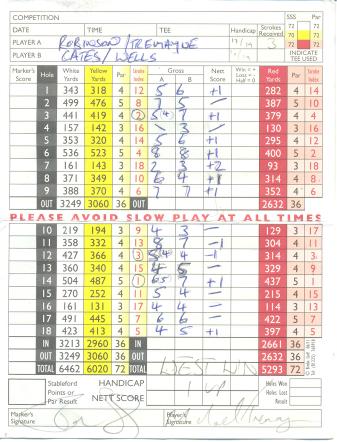 COMPETITION
DATE TIME TEE Handicap Strokes Received SSS Par
PLAYER A ROBINSON/TREMAYNE 3 72 72
PLAYER B CATES/WELLS INDICATE TEE USED
Marker's Score Hole White Yards Yellow Yards Par Stroke Index Gross A B Nett Score Win = + Loss = - Half = 0 Red Yards Par Stroke Index
1 343 318 4 12 5 6 +1 282 4 14
2 499 476 5 8 7 5 - 387 5 10
3 441 419 4 2 5 4 7 +1 379 4 4
4 157 142 3 16 3 - 130 3 16
5 353 320 4 14 5 6 +1 295 4 12
6 536 523 5 4 8 8 +1 400 5 2
7 161 143 3 18 2 3 +2 93 3 18
8 371 349 4 10 6 4 +1 314 4 8
9 388 370 4 6 7 7 +1 352 4 6
OUT 3249 3060 36 OUT 2632 36
PLEASE AVOID SLOW PLAY AT ALL TIMES
10 219 194 3 9 4 3 - 129 3 17
11 358 332 4 13 8 7 -1 304 4 11
12 427 366 4 3 5 4 4 -1 314 4 3
13 360 340 4 15 4 5 - 329 4 9
14 504 487 5 1 6 5 7 +1 437 5 1
15 270 252 4 11 5 4 - 215 4 15
16 161 131 3 17 4 4 - 114 3 13
17 491 445 5 7 6 6 - 422 5 7
18 423 413 4 5 4 5 +1 397 4 5
IN 3213 2960 36 IN 2661 36
OUT 3249 3060 36 OUT 2632 36
TOTAL 6462 6020 72 TOTAL 5293 72
WEST WIN
1 UP
Stableford Points or Par Result HANDICAP Holes Won
NETT SCORE Holes Lost
Result
Marker's Signature Player's Signature